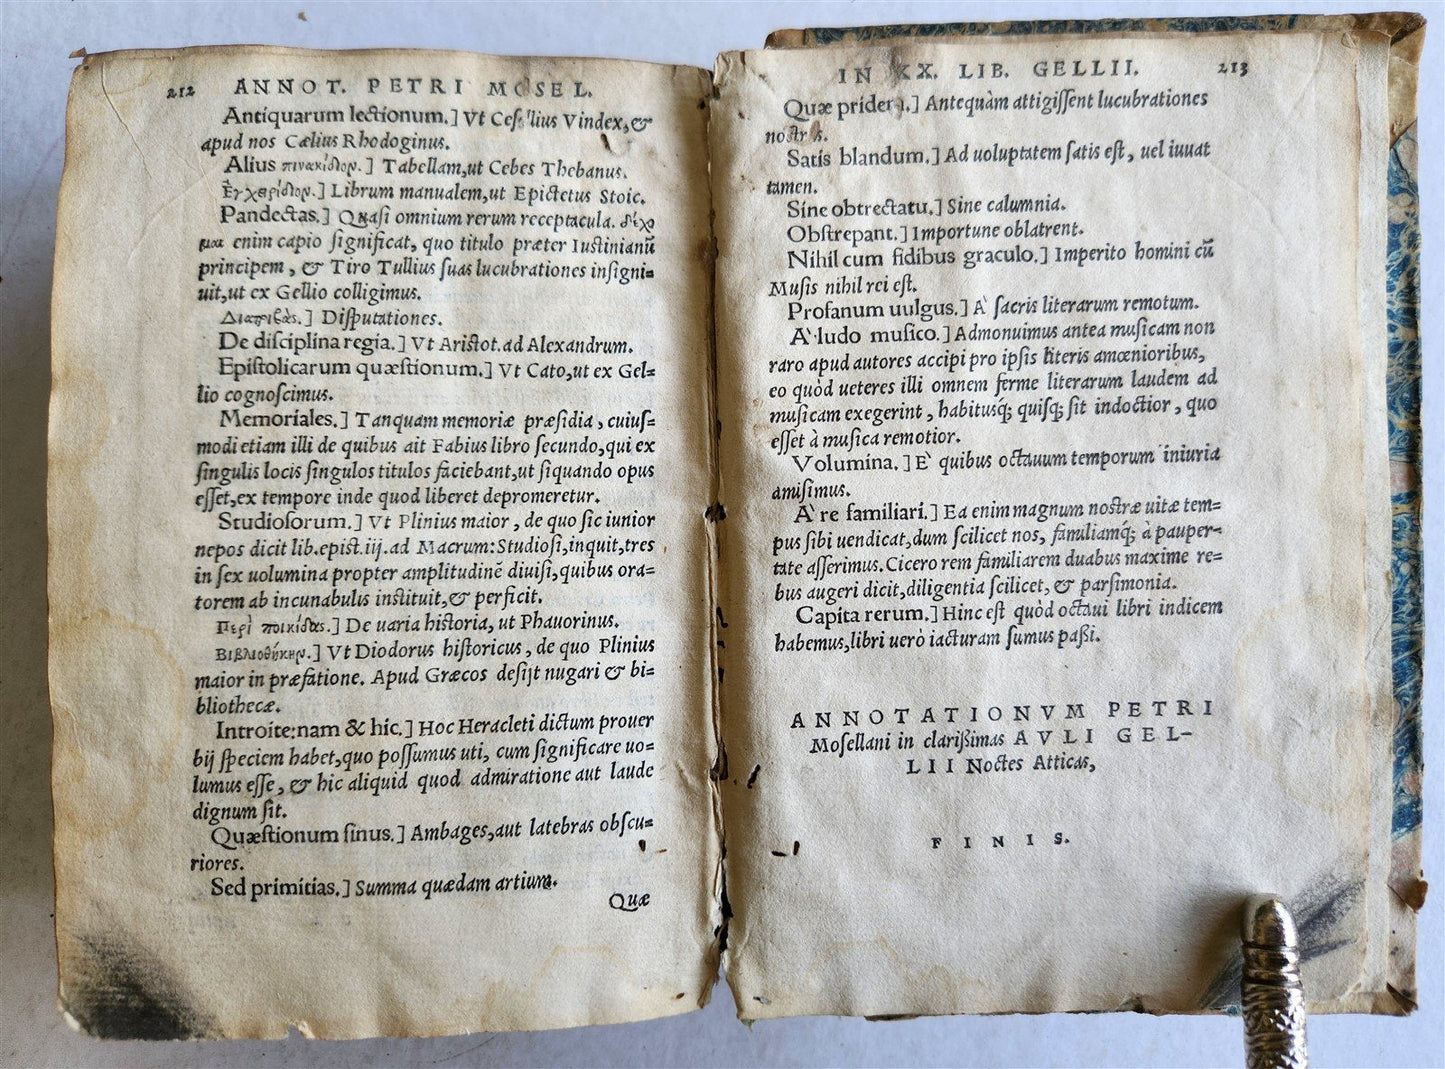 212 ANNOT. PETRI MOSEL.
Antiquarum lectionum.] Vt Cesellius Vindex, &
apud nos Cælius Rhodoginus.
Alius πινακίδιον.] Tabellam, ut Cebes Thebanus.
Ἐγχειρίδιον.] Librum manualem, ut Epictetus Stoic.
Pandectas.] Quasi omnium rerum receptacula. δέχο
μαι enim capio significat, quo titulo præter Iustinianū
principem, & Tiro Tullius suas lucubrationes insigni=
uit, ut ex Gellio colligimus.
Διατριβὰς.] Disputationes.
De disciplina regia.] Vt Aristot. ad Alexandrum.
Epistolicarum quæstionum.] Vt Cato, ut ex Gel=
lio cognoscimus.
Memoriales.] Tanquam memoriæ præsidia, cuius=
modi etiam illi de quibus ait Fabius libro secundo, qui ex
singulis locis singulos titulos faciebant, ut siquando opus
esset, ex tempore inde quod liberet depromeretur.
Studiosorum.] Vt Plinius maior, de quo sic iunior
nepos dicit lib. epist. iij. ad Macrum: Studiosi, inquit, tres
in sex uolumina propter amplitudinē diuisi, quibus ora=
torem ab incunabulis instituit, & perficit.
Περὶ ποικιλίας.] De uaria historia, ut Phauorinus.
Βιβλιοθήκην.] Vt Diodorus historicus, de quo Plinius
maior in præfatione. Apud Græcos desijt nugari & bi=
bliothecæ.
Introite: nam & hic.] Hoc Heracleti dictum prouer
bij speciem habet, quo possumus uti, cum significare uo=
lumus esse, & hic aliquid quod admiratione aut laude
dignum sit.
Quæstionum sinus.] Ambages, aut latebras obscu=
riores.
Sed primitias.] Summa quædam artium.
Quæ
IN XX. LIB. GELLII. 213
Quæ pridem.] Antequàm attigissent lucubrationes
nostras.
Satis blandum.] Ad uoluptatem satis est, uel iuuat
tamen.
Sine obtrectatu.] Sine calumnia.
Obstrepant.] Importune oblatrent.
Nihil cum fidibus graculo.] Imperito homini cū
Musis nihil rei est.
Profanum uulgus.] A' sacris literarum remotum.
A' ludo musico.] Admonuimus antea musicam non
raro apud autores accipi pro ipsis literis amœnioribus,
eo quòd ueteres illi omnem ferme literarum laudem ad
musicam exegerint, habitusq; quisq; sit indoctior, quo
esset à musica remotior.
Volumina.] E' quibus octauum temporum iniuria
amisimus.
A' re familiari.] Ea enim magnum nostræ uitæ tem=
pus sibi uendicat, dum scilicet nos, familiamq́; à pauper=
tate asserimus. Cicero rem familiarem duabus maxime re=
bus augeri dicit, diligentia scilicet, & parsimonia.
Capita rerum.] Hinc est quòd octaui libri indicem
habemus, libri uerò iacturam sumus paßi.
ANNOTATIONVM PETRI
Mosellani in clarißimas AVLI GEL-
LII Noctes Atticas,
FINIS.